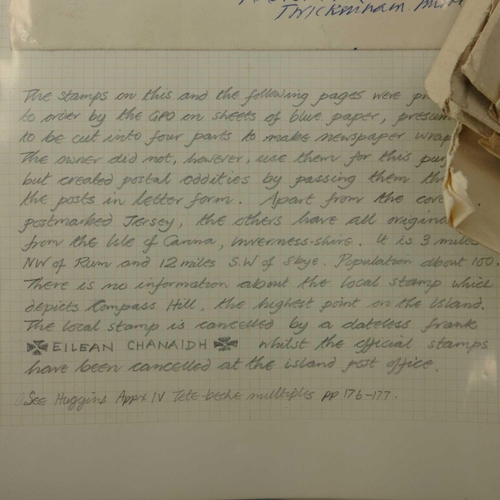 Twickenham
The stamps on this and the following pages were
to order by the GPO on sheets of blue paper,
to be cut into four parts to make newspaper
The owner did not, however, use them for this
but created postal oddities by passing them
the posts in letter form. Apart from the
postmarked Jersey, the others have all
from the Isle of Canna, Inverness-shire. It is 3 miles
NW of Rum and 12 miles S.W of Skye. Population about 100.
There is no information about the local stamp which
depicts Compass Hill, the highest point on the Island.
The local stamp is cancelled by a dateless frank
EILEAN CHANAIDH whilst the official stamps
have been cancelled at the island post office.
See Huggins Appx IV Tete-beche multiples pp 176-177.